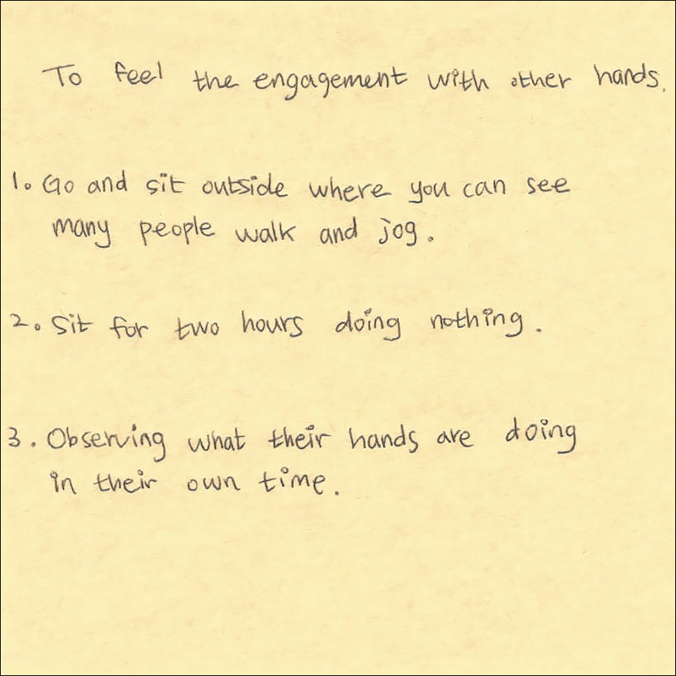 To feel the engagement with other hands.
1. Go and sit outside where you can see
many people walk and jog.
2. Sit for two hours doing nothing.
3. Observing what their hands are doing
in their own time.